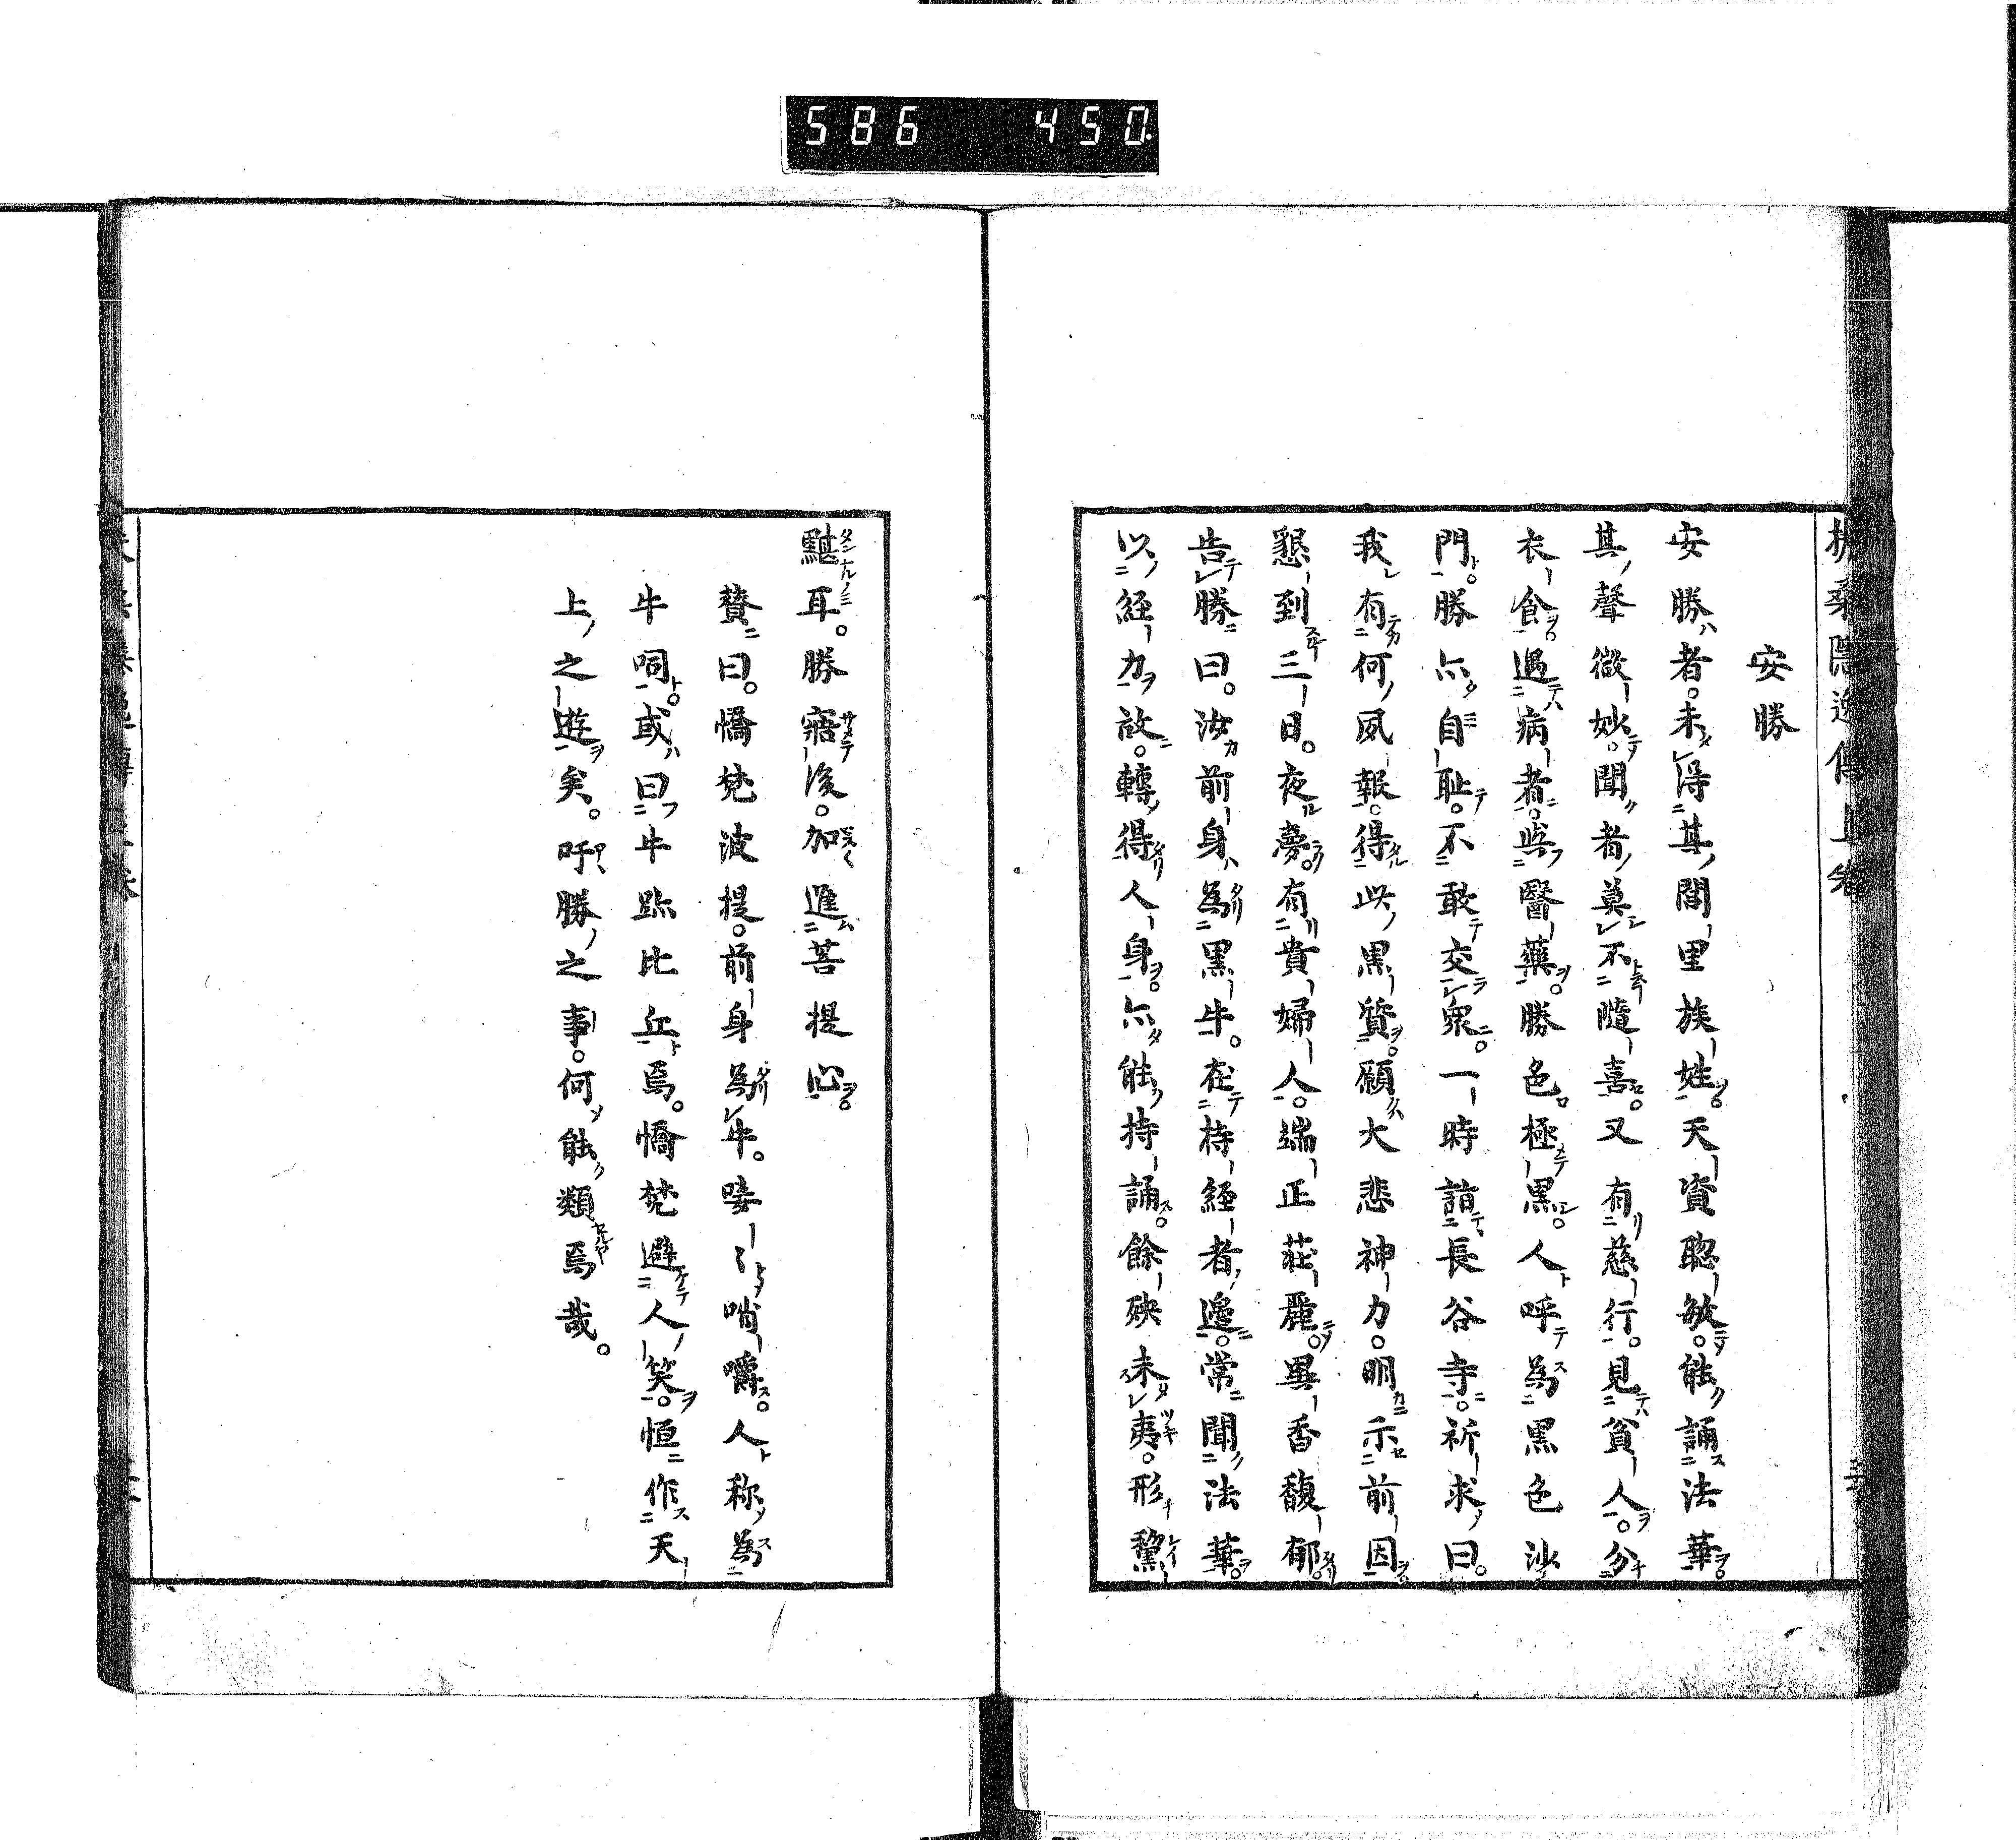 586 450
扶桑隠逸傳上卷
安勝
安勝者。未得其閭里族姓。天資聡敏。能誦法華。
其聲微妙。聞者莫不隨喜。又有慈行。見貧人。分
衣食。遇病者。與醫藥。勝色極黒。人呼為黒色沙
門。勝亦自耻。不敢交衆。一時詣長谷寺。祈求曰。
我有何夙報。得此黒質。願大悲神力。明示前因。
懇到三日。夜夢。有貴婦人。端正莊麗。異香馥郁。
告勝曰。汝前身為黒牛。在持經者邊。常聞法華。
以經力故。轉得人身。亦能持誦。餘殃未夷。形黧
黮耳。勝寤後。加進菩提心。
賛曰。憍梵波提。前身為牛。唼〻哨嚼。人称為
牛呞。或曰牛跡比丘焉。憍梵避人笑。恒作天
上之遊矣。吁勝之事。何能類焉哉。